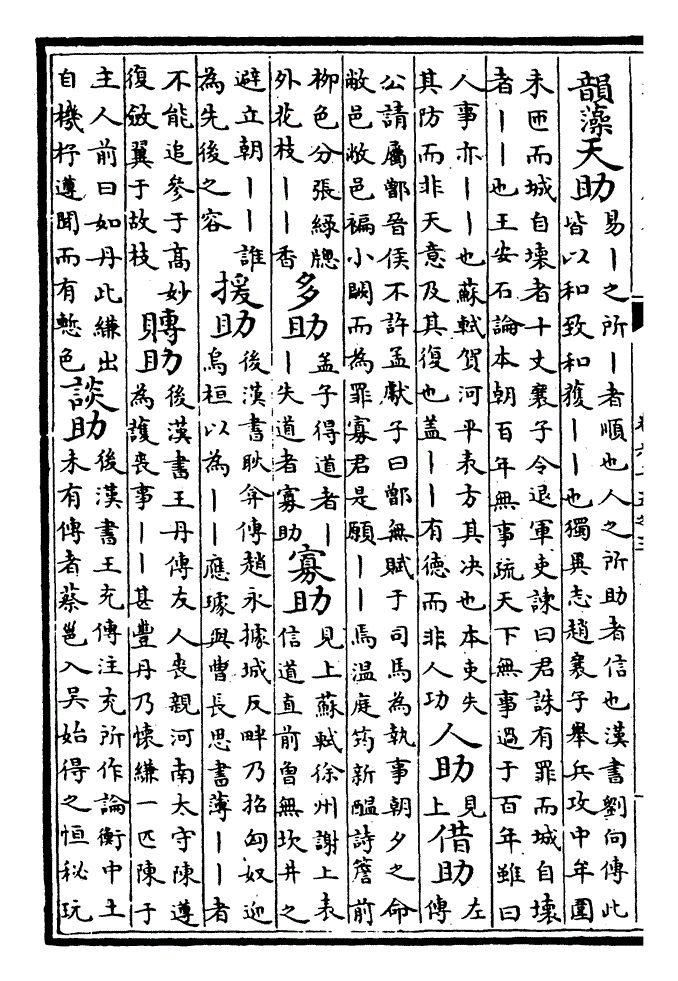 韻藻天助易丨之所丨者順也人之所助者信也漢書劉向傳此
皆以和致和獲丨丨也獨異志趙襄子舉兵攻中牟圍
未匝而城自壞者十丈襄子令退軍吏諫曰君誅有罪而城自壞
者丨丨也王安石論本朝百年無事疏天下無事過于百年雖曰
人事亦丨丨也蘇軾賀河平表方其决也本吏失
其防而非天意及其復也蓋丨丨有德而非人功
人助見上借助左傳
公請屬鄫晉侯不許孟獻子曰鄫無賦于司馬為執事朝夕之命
敝邑敝邑褊小闕而為罪寡君是願丨丨焉溫庭筠新醖詩簷前
柳色分張綠牕
外花枝丨丨香
多助孟子得道者丨
丨失道者寡助
寡助見上蘇軾徐州謝上表
信道直前曾無坎井之
避立朝丨丨誰
為先後之容
援助後漢書耿弇傳趙永據城反畔乃招匈奴迎
烏桓以為丨丨應璩與曹長思書薄丨丨者
不能追參于高妙
復斂翼于故枝
賻助後漢書王丹傳友人喪親河南太守陳遵
為護喪事丨丨甚豐丹乃懷縑一匹陳于
主人前曰如丹此縑出
自機杼遵聞而有慙色
談助後漢書王充傳注充所作論衡中土
未有傳者蔡邕入吳始得之恒秘玩